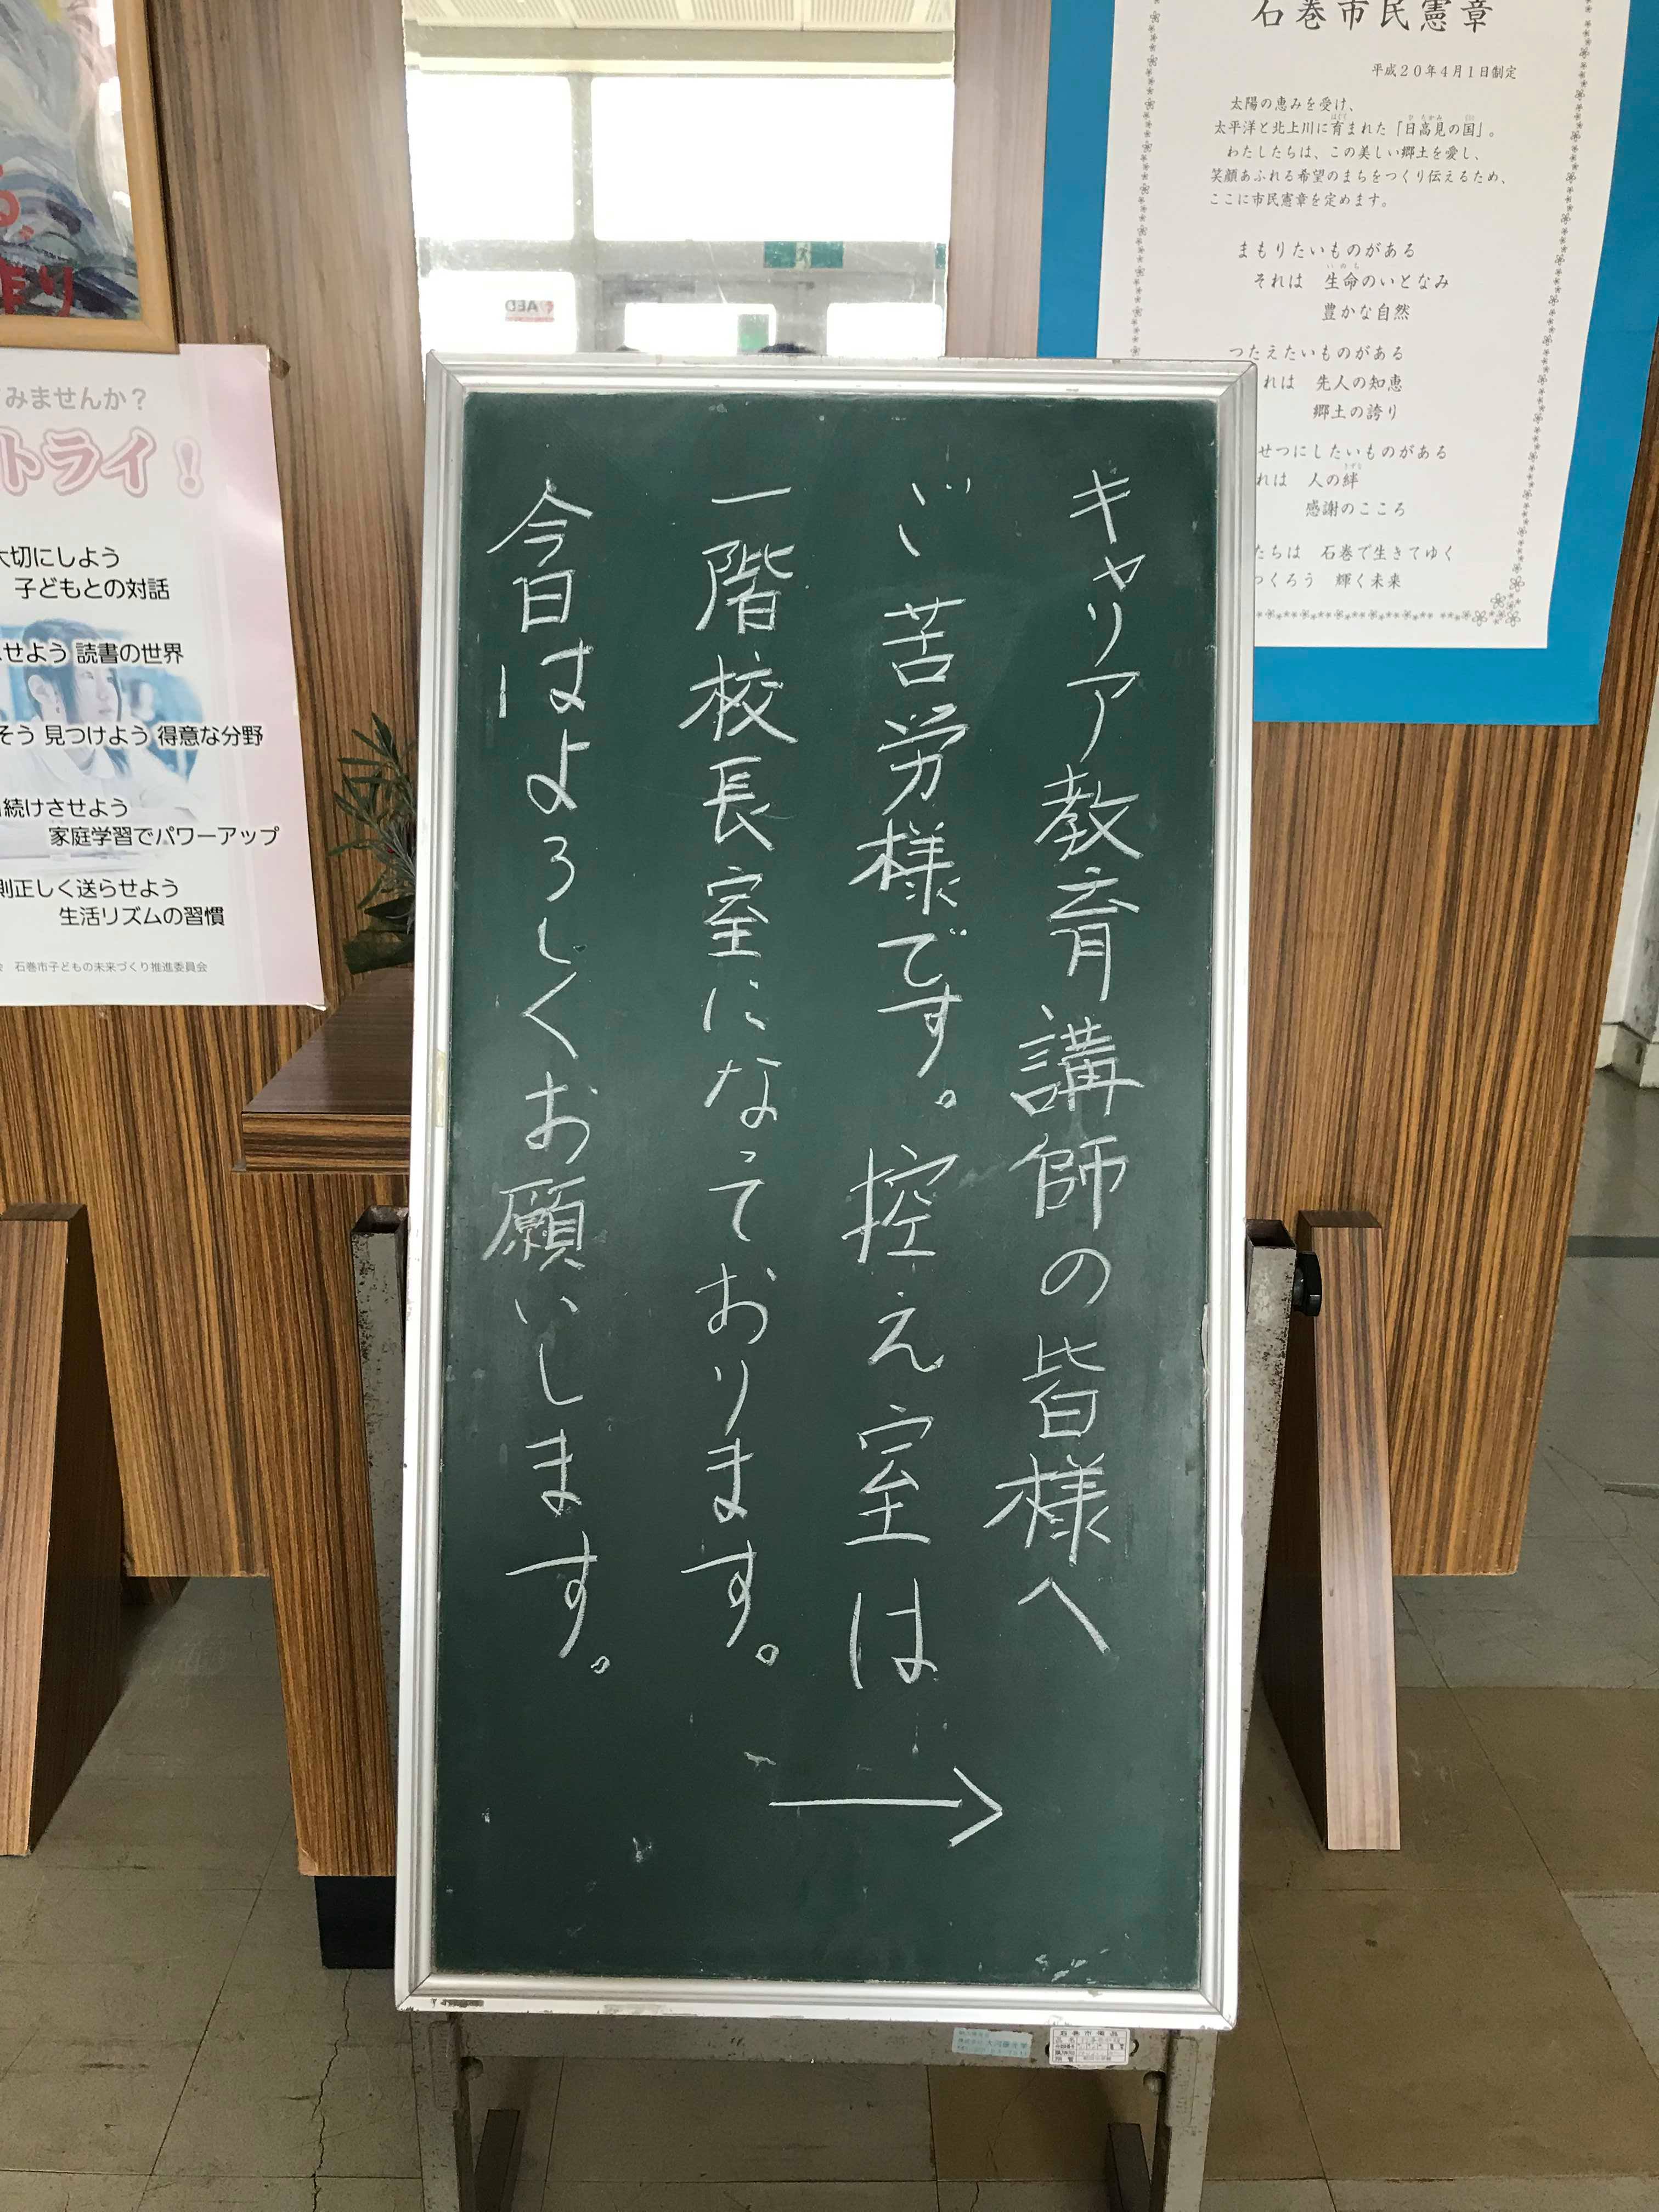 キャリア教育講師の皆様へ
ご苦労様です。控え室は
一階校長室になっております。
今日はよろしくお願いします。
→
石巻市民憲章
平成20年4月1日制定
太陽の恵みを受け、
太平洋と北上川に育まれた「日高見の国」。
わたしたちは、この美しい郷土を愛し、
笑顔あふれる希望のまちをつくり伝えるため、
ここに市民憲章を定めます。
まもりたいものがある
それは 生命のいとなみ
豊かな自然
つたえたいものがある
れは 先人の知恵
郷土の誇り
せつにしたいものがある
れは 人の絆
感謝のこころ
たちは 石巻で生きてゆく
つくろう 輝く未来
みませんか？
トライ！
大切にしよう
子どもとの対話
せよう 読書の世界
そう 見つけよう 得意な分野
続けさせよう
家庭学習でパワーアップ
則正しく送らせよう
生活リズムの習慣
石巻市子どもの未来づくり推進委員会
AED
石巻市備品